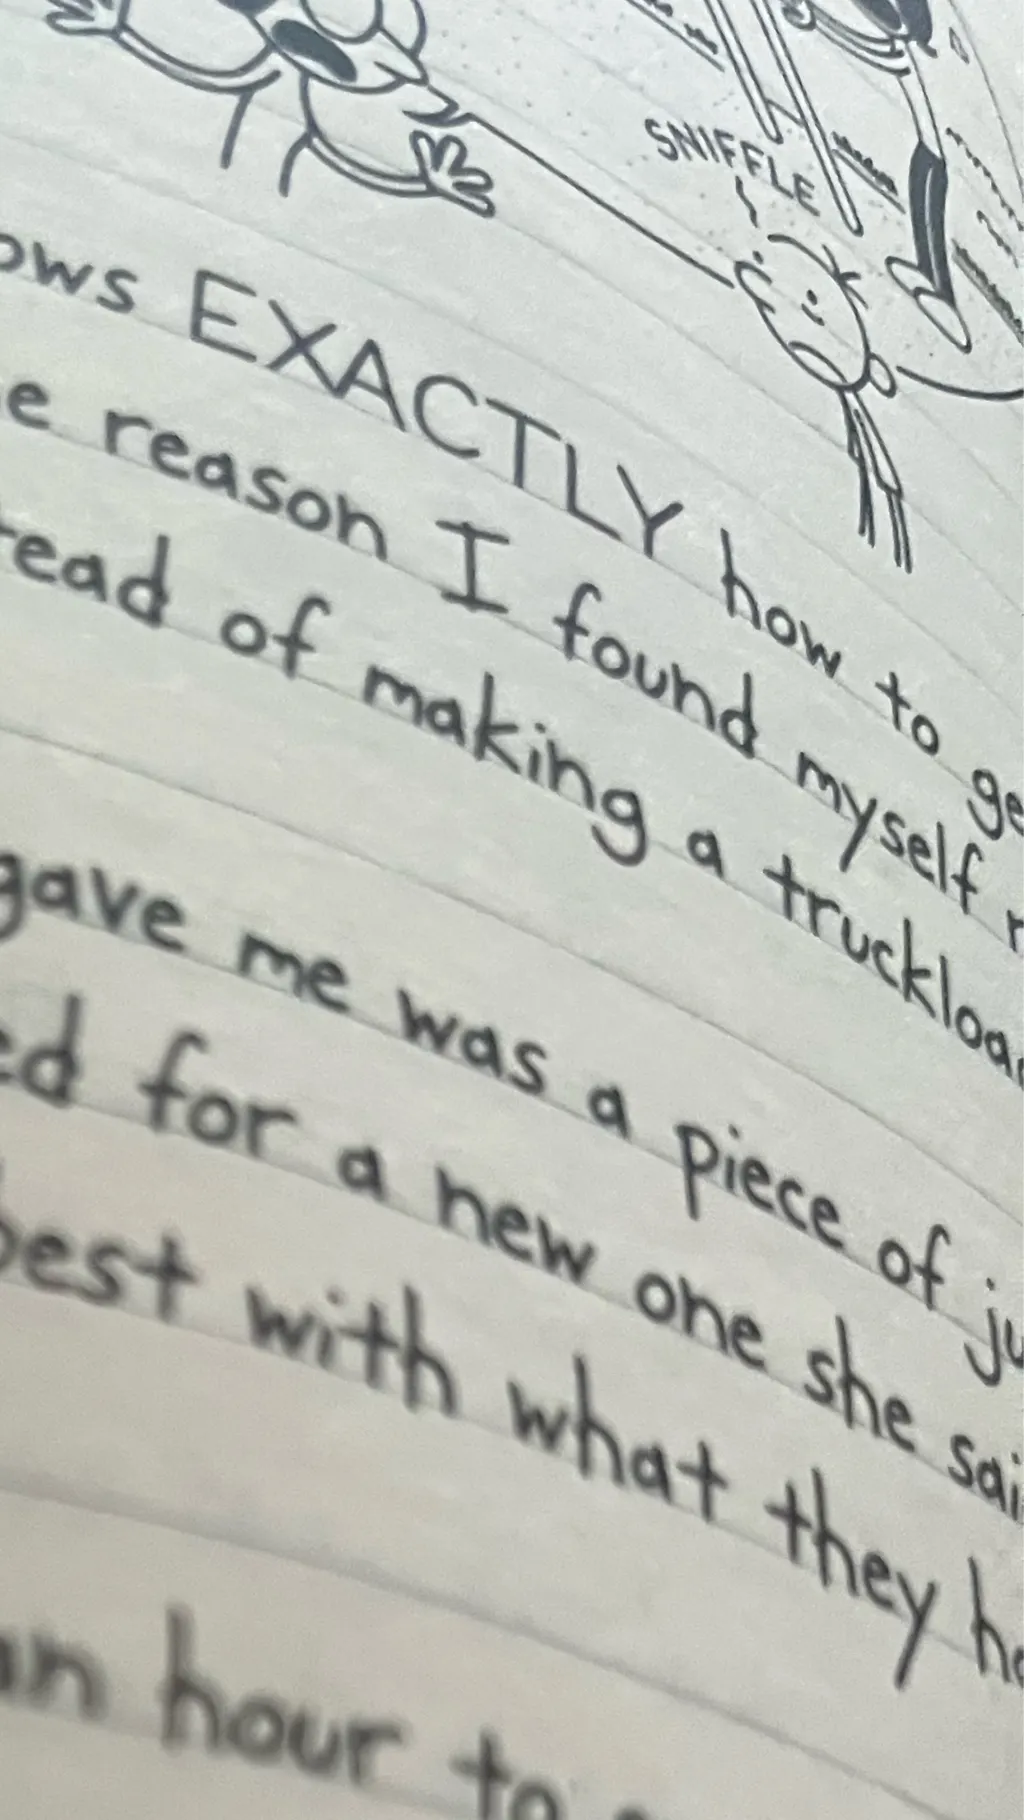 SNIFFLE
ows EXACTLY how to ge
e reason I found myself r
tead of making a truckloa
gave me was a piece of ju
ed for a new one she sai
best with what they ha
an hour to